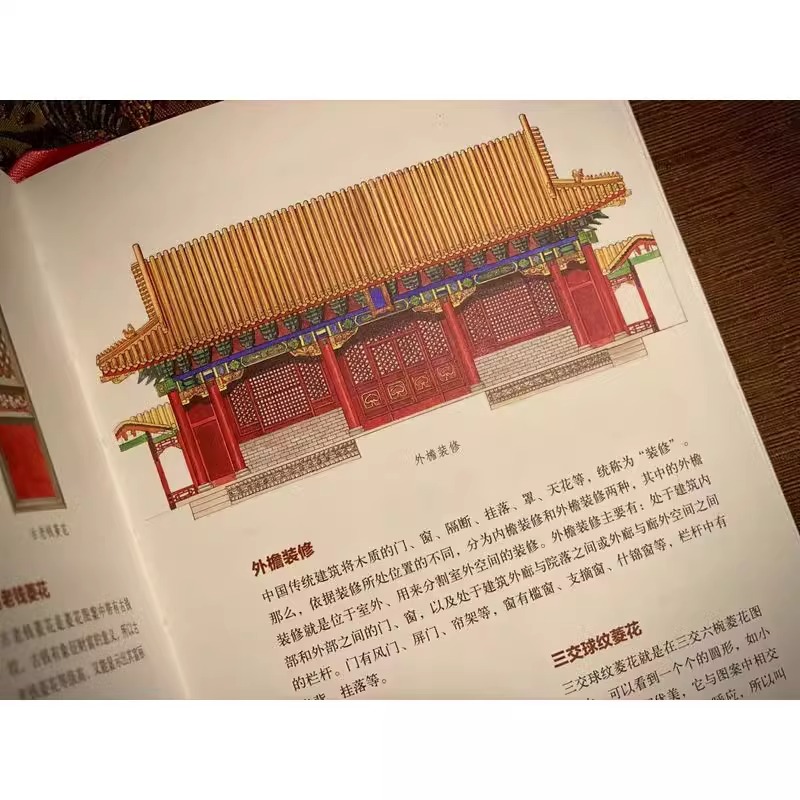 古老钱菱花
老钱菱花
古老钱菱花是菱花图案中带有古钱
纹，古钱有象征财富的意义，所以古
外檐装修
外檐装修
中国传统建筑将木质的门、窗、隔断、挂落、罩、天花等，统称为“装修”。
那么，依据装修所处位置的不同，分为内檐装修和外檐装修两种，其中的外檐
装修就是位于室外、用来分割室外空间的装修。外檐装修主要有：处于建筑内
部和外部之间的门、窗，以及处于建筑外廊与院落之间或外廊与廊外空间之间
的栏杆。门有风门、屏门、帘架等，窗有槛窗、支摘窗、什锦窗等，栏杆中有
背、挂落等。
三交球纹菱花
三交球纹菱花就是在三交六椀菱花图
可以看到一个个的圆形，如小
优美，它与图案中相交
呼应，所以叫